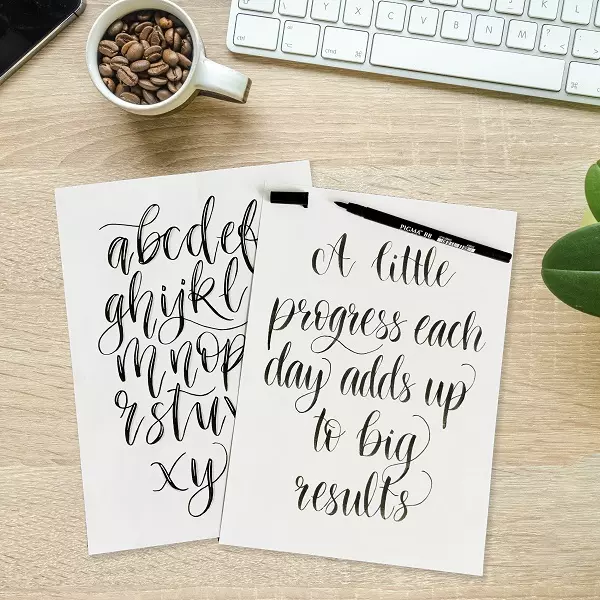 abcdef
ghijkl
mnop
rstuv
xy
A little
progress each
day adds up
to big
results
PIGMA BB
Z X C V B N M